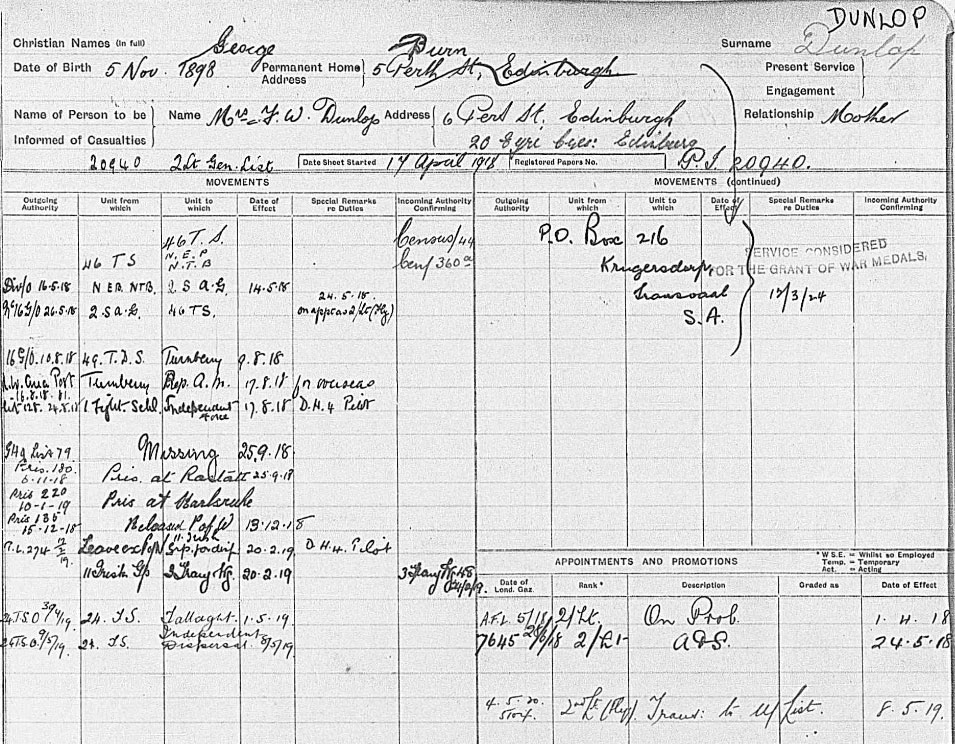 DUNLOP
Christian Names (in full) George Burn Surname Dunlop
Date of Birth 5 Nov. 1898 Permanent Home Address 5 Perth St, Edinburgh Present Service
Engagement
Name of Person to be Informed of Casualties Name Mrs F. W. Dunlop Address 6 Pert St. Edinburgh Relationship Mother
20 Eyri Edinburg
20940 2Lt Gen. List Date Sheet Started 17 April 1918 Registered Papers No. P.I. 20940.
MOVEMENTS
Outgoing Authority Unit from which Unit to which Date of Effect Special Remarks re Duties Incoming Authority Confirming
46 T. S. Census/44
N.E.P
46 TS N.T.B 360
Div/o 16.5.18 N.E.B. NTB. 2 S A.G. 14.5.18
G/O 26.5.18 2.S.A.G. 46 TS. 24.5.18. on app as 2/Lt (Hy)
16 G/O. 10.8.18 49. T.D.S. Turnberry 9.8.18
Area Post 16.8.18. 81. Turnberry Rep. A.M. 17.8.18 for overseas
List 128. 24.8.18 1 Fight. Schl. Independent Force 17.8.18 D.H.4 Pilot
GHQ List 79 Missing 25.9.18
Pris. 180 6-11-18 Pris. at Rastatt 25.9.18
Pris 220 10-1-19 Pris at Karlsruhe
Pris 185 15-12-18 Released P of W 13.12.18
T.L. 274 Leave ex P/W 11 Irish Grp. for disp. 20.2.19 D.H.4. Pilot
11 Irish Gp 3 Trang Wg. 20.2.19 3 Trang Wg 48
24 T.S.O 24. T.S. Tallaght. 1.5.19
24 T.S.O. 9/5/19. 24. T.S. Independent Dispersal 8/5/19.
MOVEMENTS (continued)
Outgoing Authority Unit from which Unit to which Date of Effect Special Remarks re Duties Incoming Authority Confirming
P.O. Box 216
Krugersdorp,
Transvaal
S.A.
SERVICE CONSIDERED
FOR THE GRANT OF WAR MEDALS.
12/3/24
APPOINTMENTS AND PROMOTIONS
* W.S.E. = Whilst so Employed
Temp. = Temporary
Act. = Acting
Date of Lond. Gaz. Rank * Description Graded as Date of Effect
A.F.L. 5/18, 2/Lt. On Prob. 1. 4. 18
7645 2/Lt A&S. 24.5.18
4.5.20. 2nd Lt (Hy). Trans: to U/List. 8.5.19.